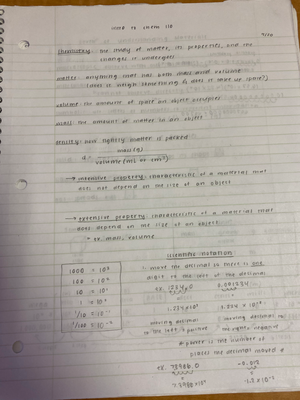 intro to chem 110
9/10
chemistry: the study of matter, its properties, and the
changes it undergoes
matter: anything that has both mass and volume
(does it weigh something & does it take up space?)
volume: the amount of space an object occupies
mass: the amount of matter in an object
density: how tightly matter is packed
d = mass (g)
volume (ml or cm³)
→ intensive property: characteristic of a material that
does not depend on the size of an object
→ extensive property: characteristic of a material that
does depend on the size of an object
* ex. mass, volume
scientific notation
1000 = 10³
100 = 10²
10 = 10¹
1 = 10⁰
1/10 = 10⁻¹
1/100 = 10⁻²
1. move the decimal so there is one
digit to the left of the decimal
ex. 1234.0
0.001234
1.234 × 10³
1.234 × 10⁻³
moving decimal
to the left = positive
moving decimal to
the right = negative
* power is the number of
places the decimal moved *
ex. 73986.0
-0.012
7.3986 × 10⁴
-1.2 × 10⁻²